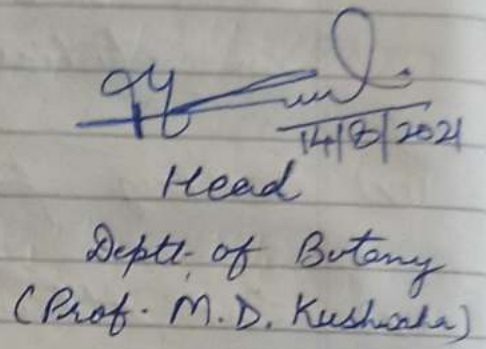 14/8/2021
Head
Deptt. of Botany
(Prof. M.D. Kushwaha)